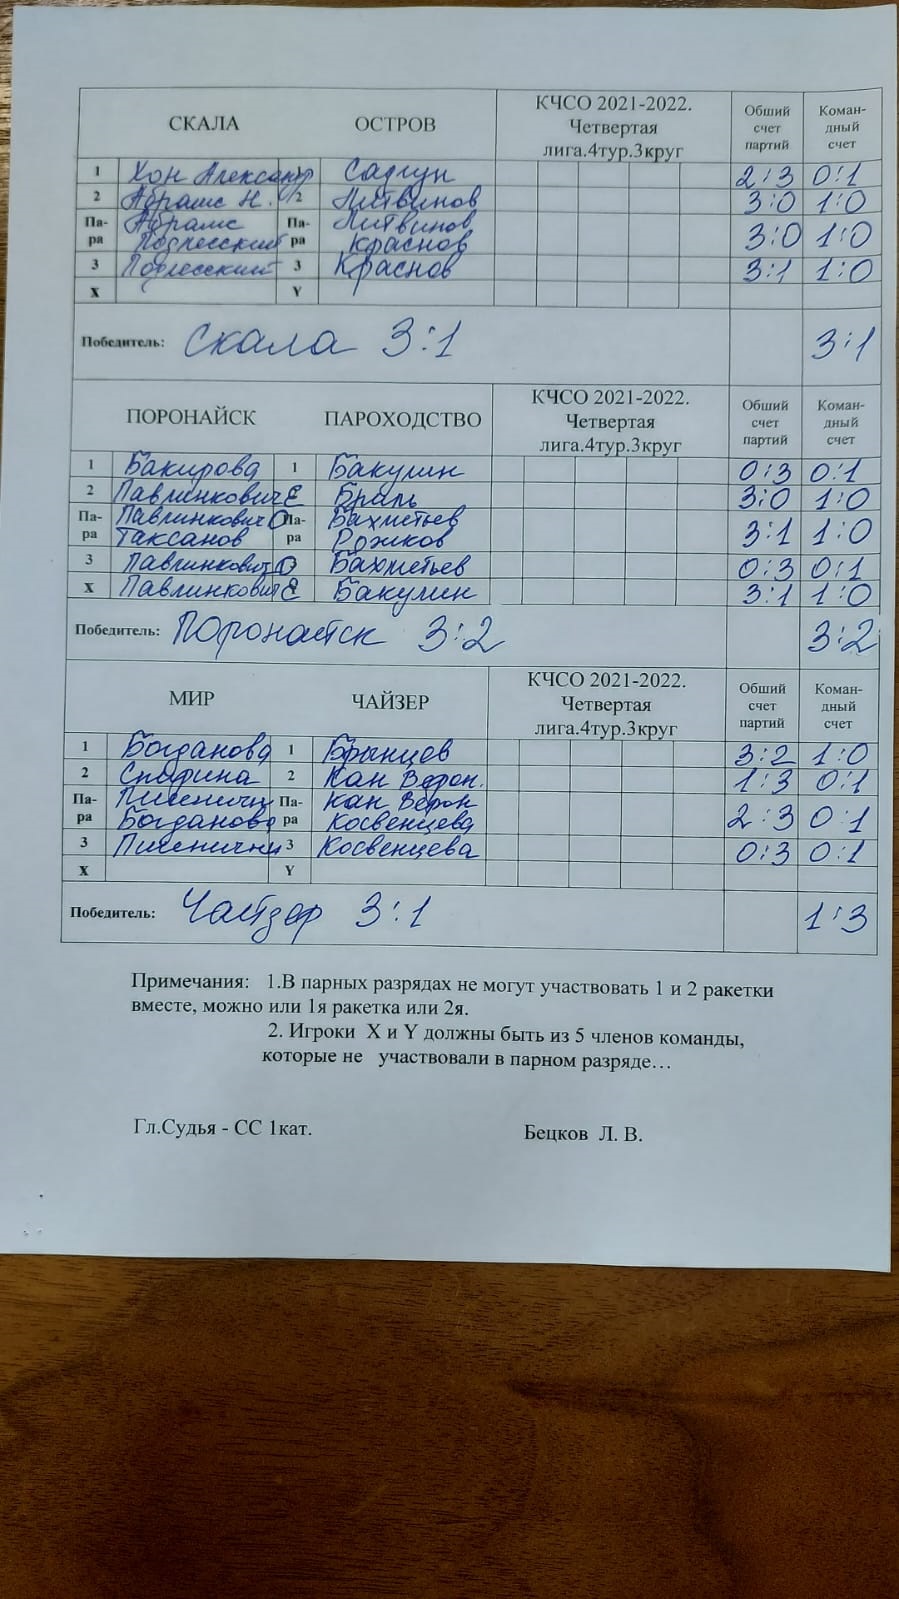 СКАЛА ОСТРОВ КЧСО 2021-2022. Четвертая лига.4тур.3круг Обший счет партий Коман-дный счет
1 Хон Александр Садгун 2:3 0:1
2 Абрамс Н. 2 Литвинов 3:0 1:0
Па-ра Абрамс Па-ра Литвинов
Подлесский Краснов 3:0 1:0
3 Подлесский 3 Краснов 3:1 1:0
X Y
Победитель: Скала 3:1 3:1
ПОРОНАЙСК ПАРОХОДСТВО КЧСО 2021-2022. Четвертая лига.4тур.3круг Обший счет партий Коман-дный счет
1 Бакирова 1 Бакулин 0:3 0:1
2 Павлинкович Е Браль 3:0 1:0
Па-ра Павлинкович О Па-ра Бахметьев
Таксанов Рожков 3:1 1:0
3 Павлинкович О Бахметьев 0:3 0:1
X Павлинкович Е Бакулин 3:1 1:0
Победитель: Поронайск 3:2 3:2
МИР ЧАЙЗЕР КЧСО 2021-2022. Четвертая лига.4тур.3круг Обший счет партий Коман-дный счет
1 Богданова 1 Брынцев 3:2 1:0
2 2 Кан Верон. 1:3 0:1
Па-ра Пшеничн Па-ра Кан Верон
Богданова Косвенцева 2:3 0:1
3 Пшенични 3 Косвенцева 0:3 0:1
X Y
Победитель: Чайзер 3:1 1:3
Примечания: 1.В парных разрядах не могут участвовать 1 и 2 ракетки
вместе, можно или 1я ракетка или 2я.
2. Игроки X и Y должны быть из 5 членов команды,
которые не участвовали в парном разряде…
Гл.Судья - СС 1кат. Бецков Л. В.